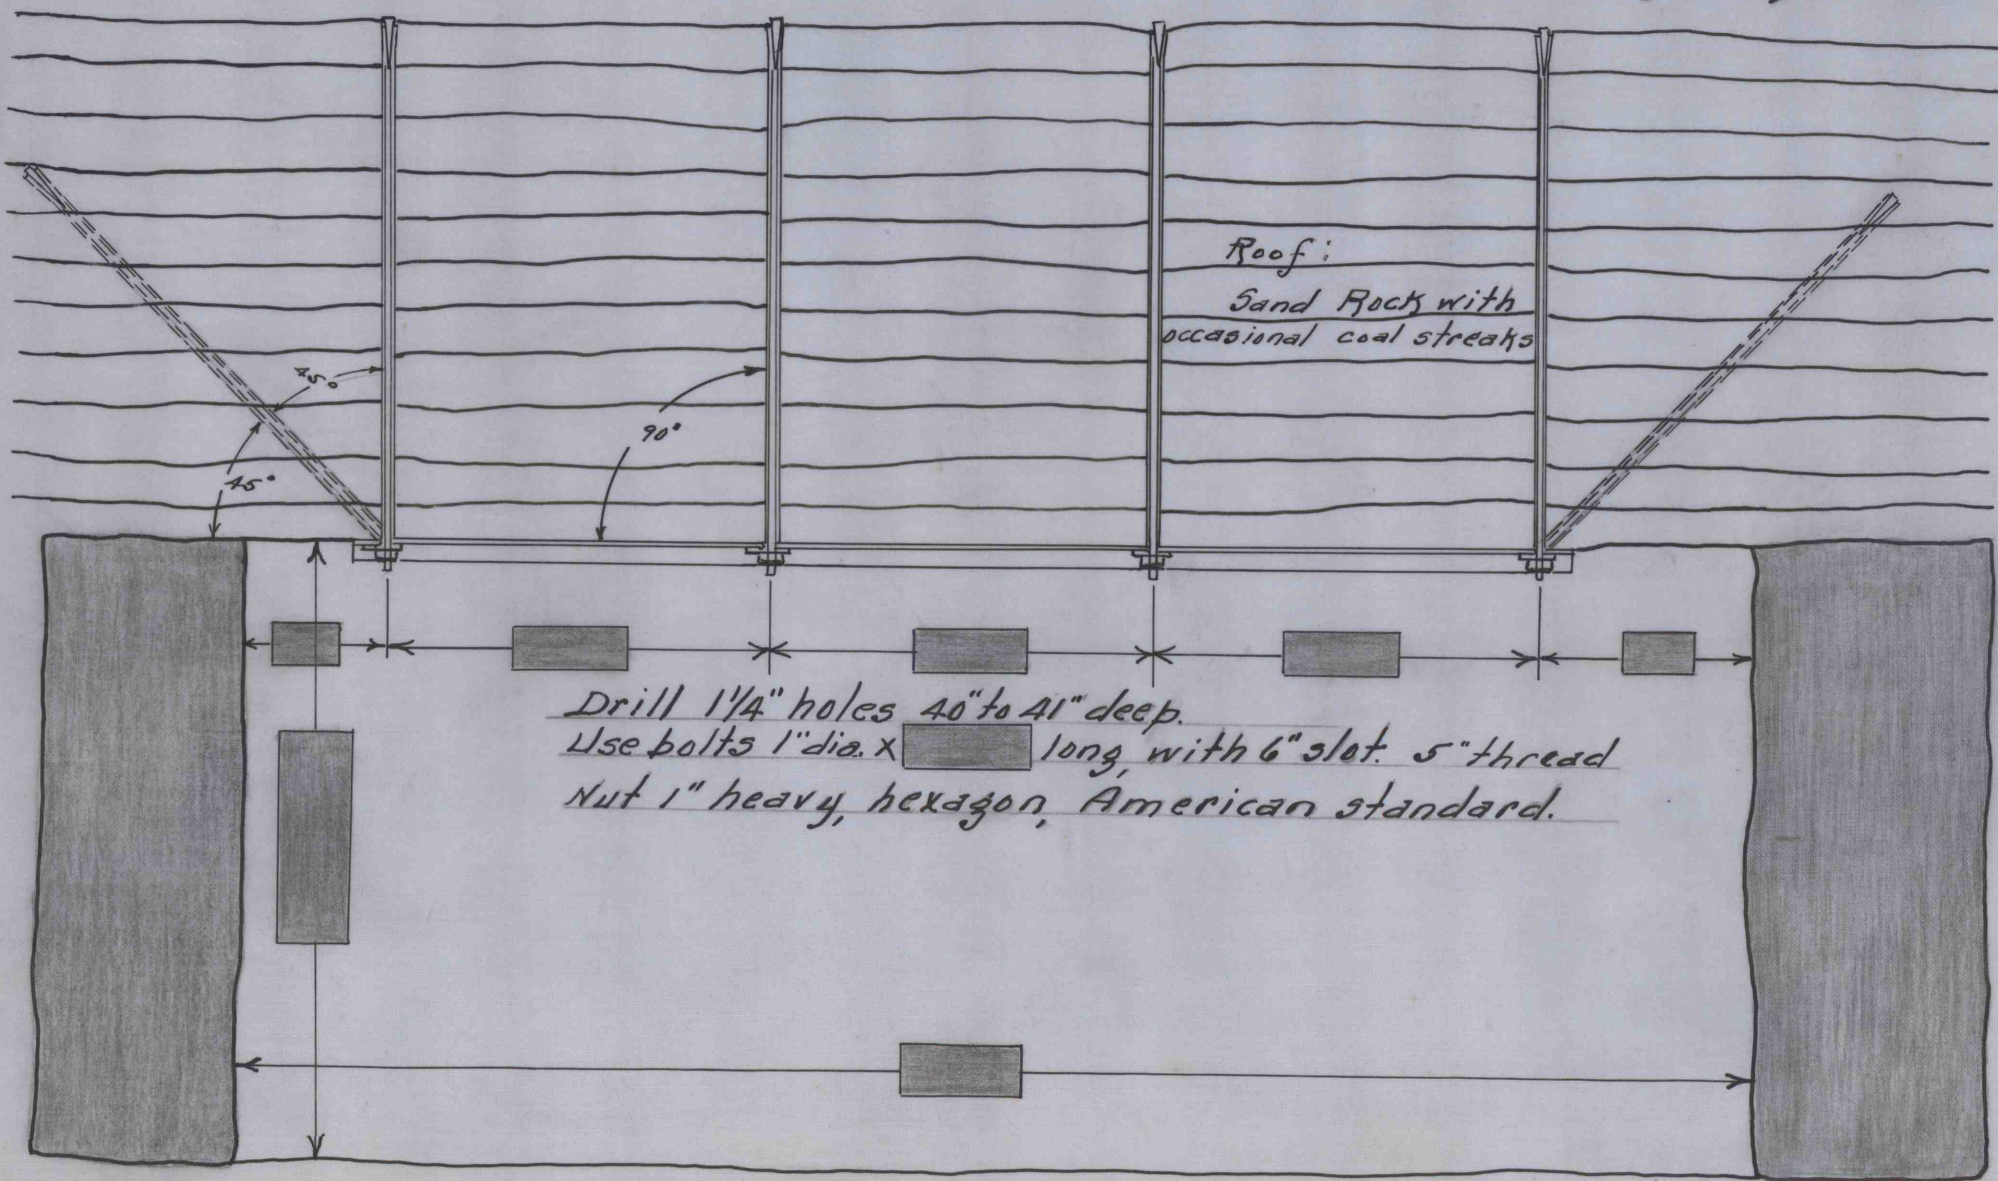 Roof:
Sand Rock with
occasional coal streaks
45°
90°
45°
Drill 1¼" holes 40" to 41" deep.
Use bolts 1" dia. x long, with 6" slot. 5" thread
Nut 1" heavy, hexagon, American standard.